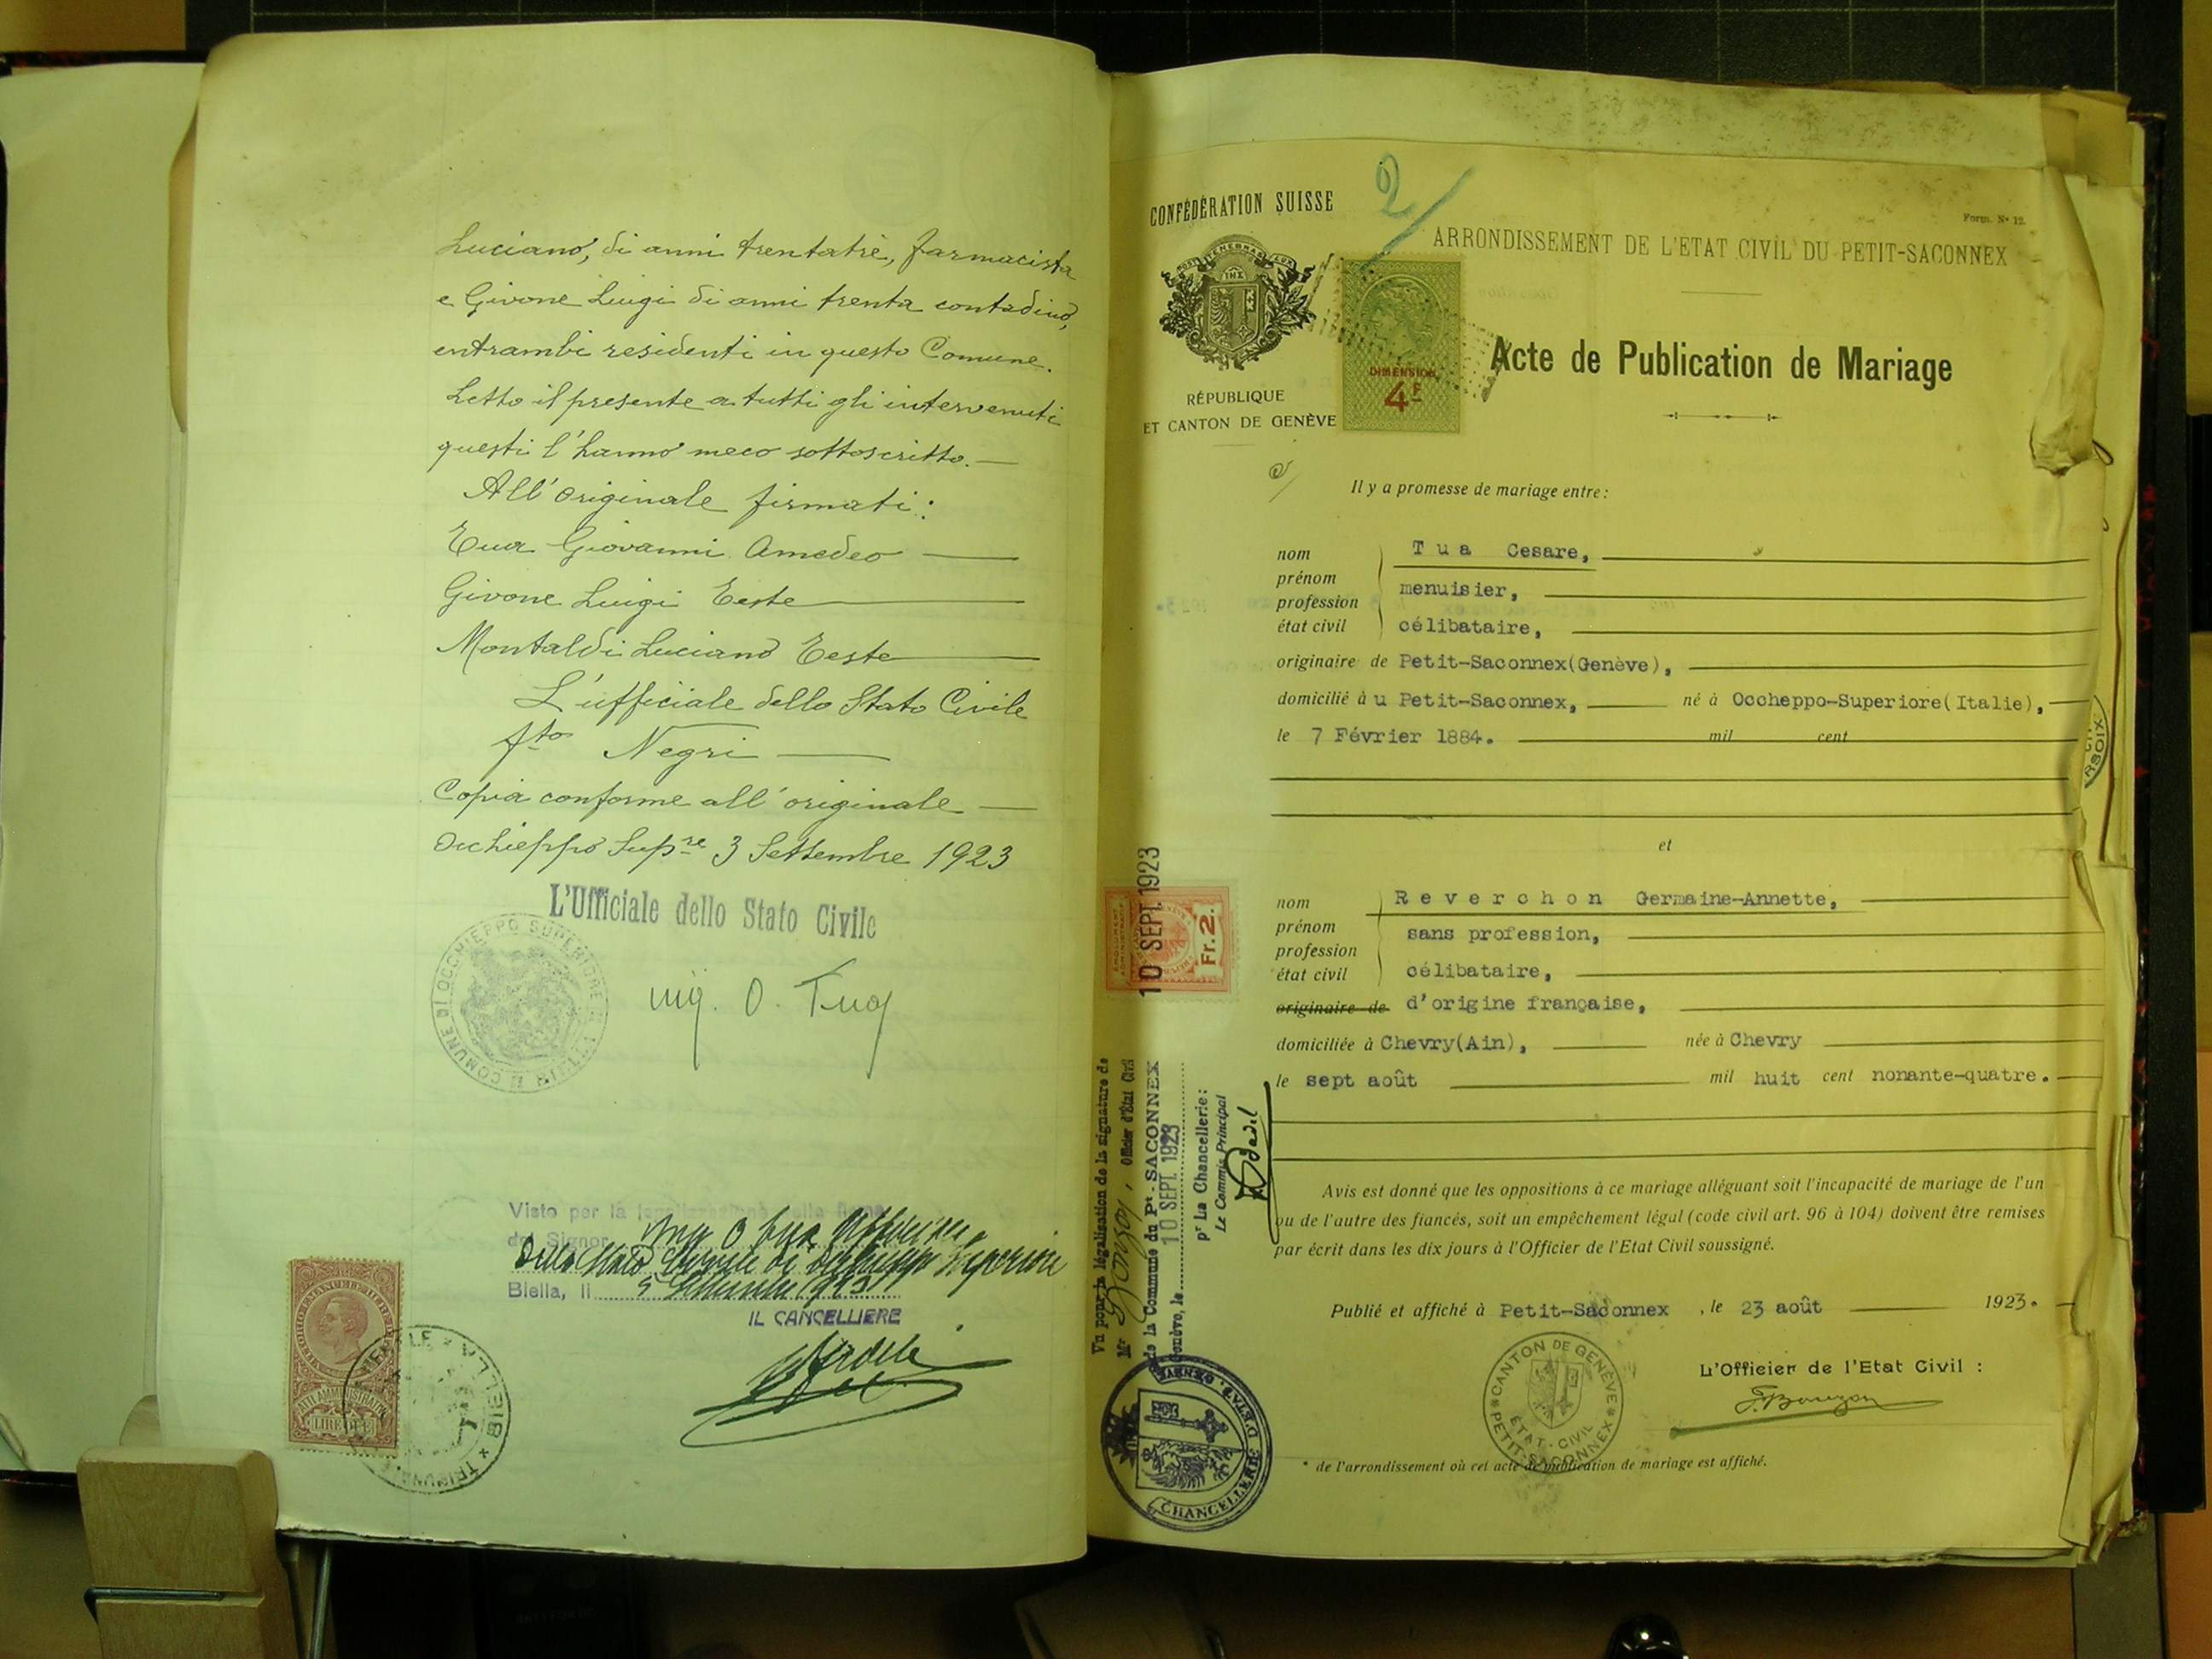 Luciano, di anni trentatrè, farmacista
e Givone Luigi di anni trenta contadino,
entrambi residenti in questo Comune.
Letto il presente a tutti gli intervenuti
questi l'hanno meco sottoscritto.—
All'originale firmati:
Tua Giovanni Amedeo
Givone Luigi Teste
Montaldi Luciano Teste
L'ufficiale dello Stato Civile
fto Negri
Copia conforme all'originale
Occhieppo Supre 3 Settembre 1923
L'Ufficiale dello Stato Civile
COMUNE DI OCCHIEPPO SUPERIORE
ing. O. Tua
Visto per la legalizzazione della firma
del Signor Ing O Tua Ufficiale
dello Stato Civile di Occhieppo Superiore
Biella, li 5 Settembre 1923
IL CANCELLIERE
VITTORIO EMANUELE III
ATTI AMMINISTRATIVI
LIRE DUE
BIELLA
CONFÉDÉRATION SUISSE
2
Form. No 12.
ARRONDISSEMENT DE L'ETAT CIVIL DU PETIT-SACONNEX
POST TENEBRAS LUX
DIMENSION
4F
RÉPUBLIQUE
ET CANTON DE GENÈVE
Acte de Publication de Mariage
Il y a promesse de mariage entre:
nom Tua Cesare,
prénom
profession menuisier,
état civil célibataire,
originaire de Petit-Saconnex(Genève),
domicilié à u Petit-Saconnex, né à Occheppo-Superiore(Italie),
le 7 Février 1884. mil cent
et
nom Reverchon Germaine-Annette,
prénom sans profession,
profession
état civil célibataire,
originaire de d'origine française,
domiciliée à Chevry(Ain), née à Chevry
le sept août mil huit cent nonante-quatre.
Avis est donné que les oppositions à ce mariage alléguant soit l'incapacité de mariage de l'un
ou de l'autre des fiancés, soit un empêchement légal (code civil art. 96 à 104) doivent être remises
par écrit dans les dix jours à l'Officier de l'Etat Civil soussigné.
Publié et affiché à Petit-Saconnex, le 23 août 1923.
L'Officier de l'Etat Civil :
CANTON DE GENÈVE
ETAT-CIVIL
PETIT-SACONNEX
* de l'arrondissement où cet acte de publication de mariage est affiché.
10 SEPT. 1923
Fr. 2.
Vu pour la légalisation de la signature de
Mr , Officier d'Etat Civil
de la Commune du Pt-SACONNEX
Genève, le 10 SEPT. 1923
pr La Chancellerie:
Le Commis Principal
CHANCELLERIE D'ÉTAT, GENÈVE